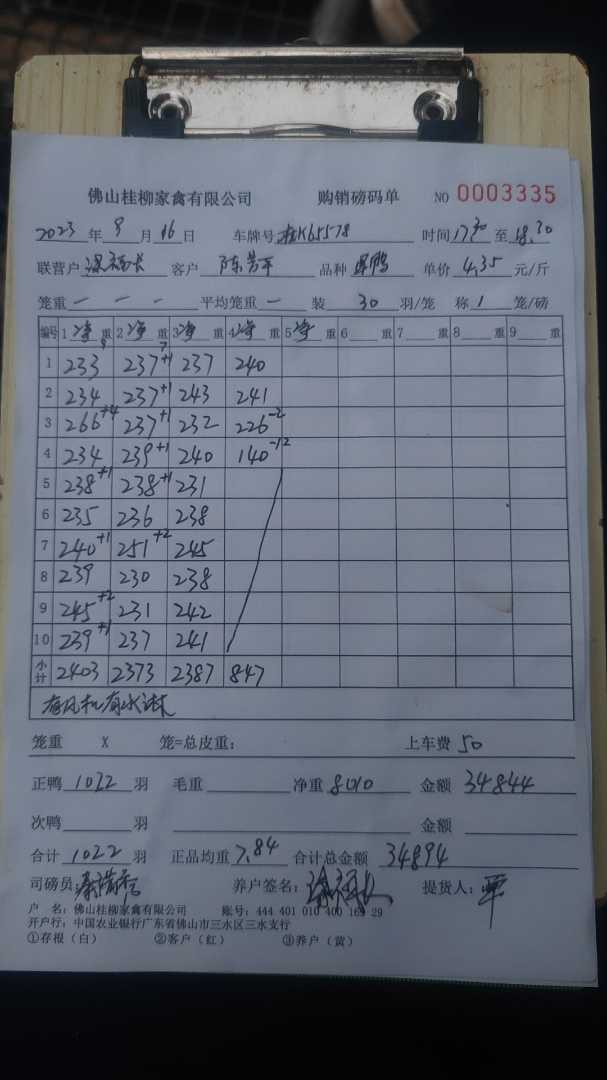 佛山桂柳家禽有限公司 购销磅码单 NO 0003335
2023 年 9 月 16 日 车牌号 桂K65578 时间 17.30 至 18.30
联营户 客户 陈芳平 品种 鸭 单价 4.35 元/斤
笼重 一 一 一 平均笼重 一 装 30 羽/笼 称 1 笼/磅
编号 1 净 重 2 净 重 3 净 重 4 净 重 5 净 重 6 重 7 重 8 重 9 重
1 233 237+1 237 240
2 234 237+1 243 241
3 266+4 237+1 232 226-2
4 234 239+1 240 140-12
5 238+1 238+1 231
6 235 236 238
7 240+1 251+2 245
8 239 230 238
9 245+2 231 242
10 239+1 237 241
小计 2403 2373 2387 847
有风机有水淋
笼重 X 笼=总皮重: 上车费 50
正鸭 1022 羽 毛重 净重 8010 金额 34844
次鸭 羽 金额
合计 1022 羽 正品均重 7.84 合计总金额 34894
司磅员 养户签名: 提货人:
户 名: 佛山桂柳家禽有限公司 账号: 444 401 010 400 169 29
开户行: 中国农业银行广东省佛山市三水区三水支行
①存根(白) ②客户(红) ③养户(黄)